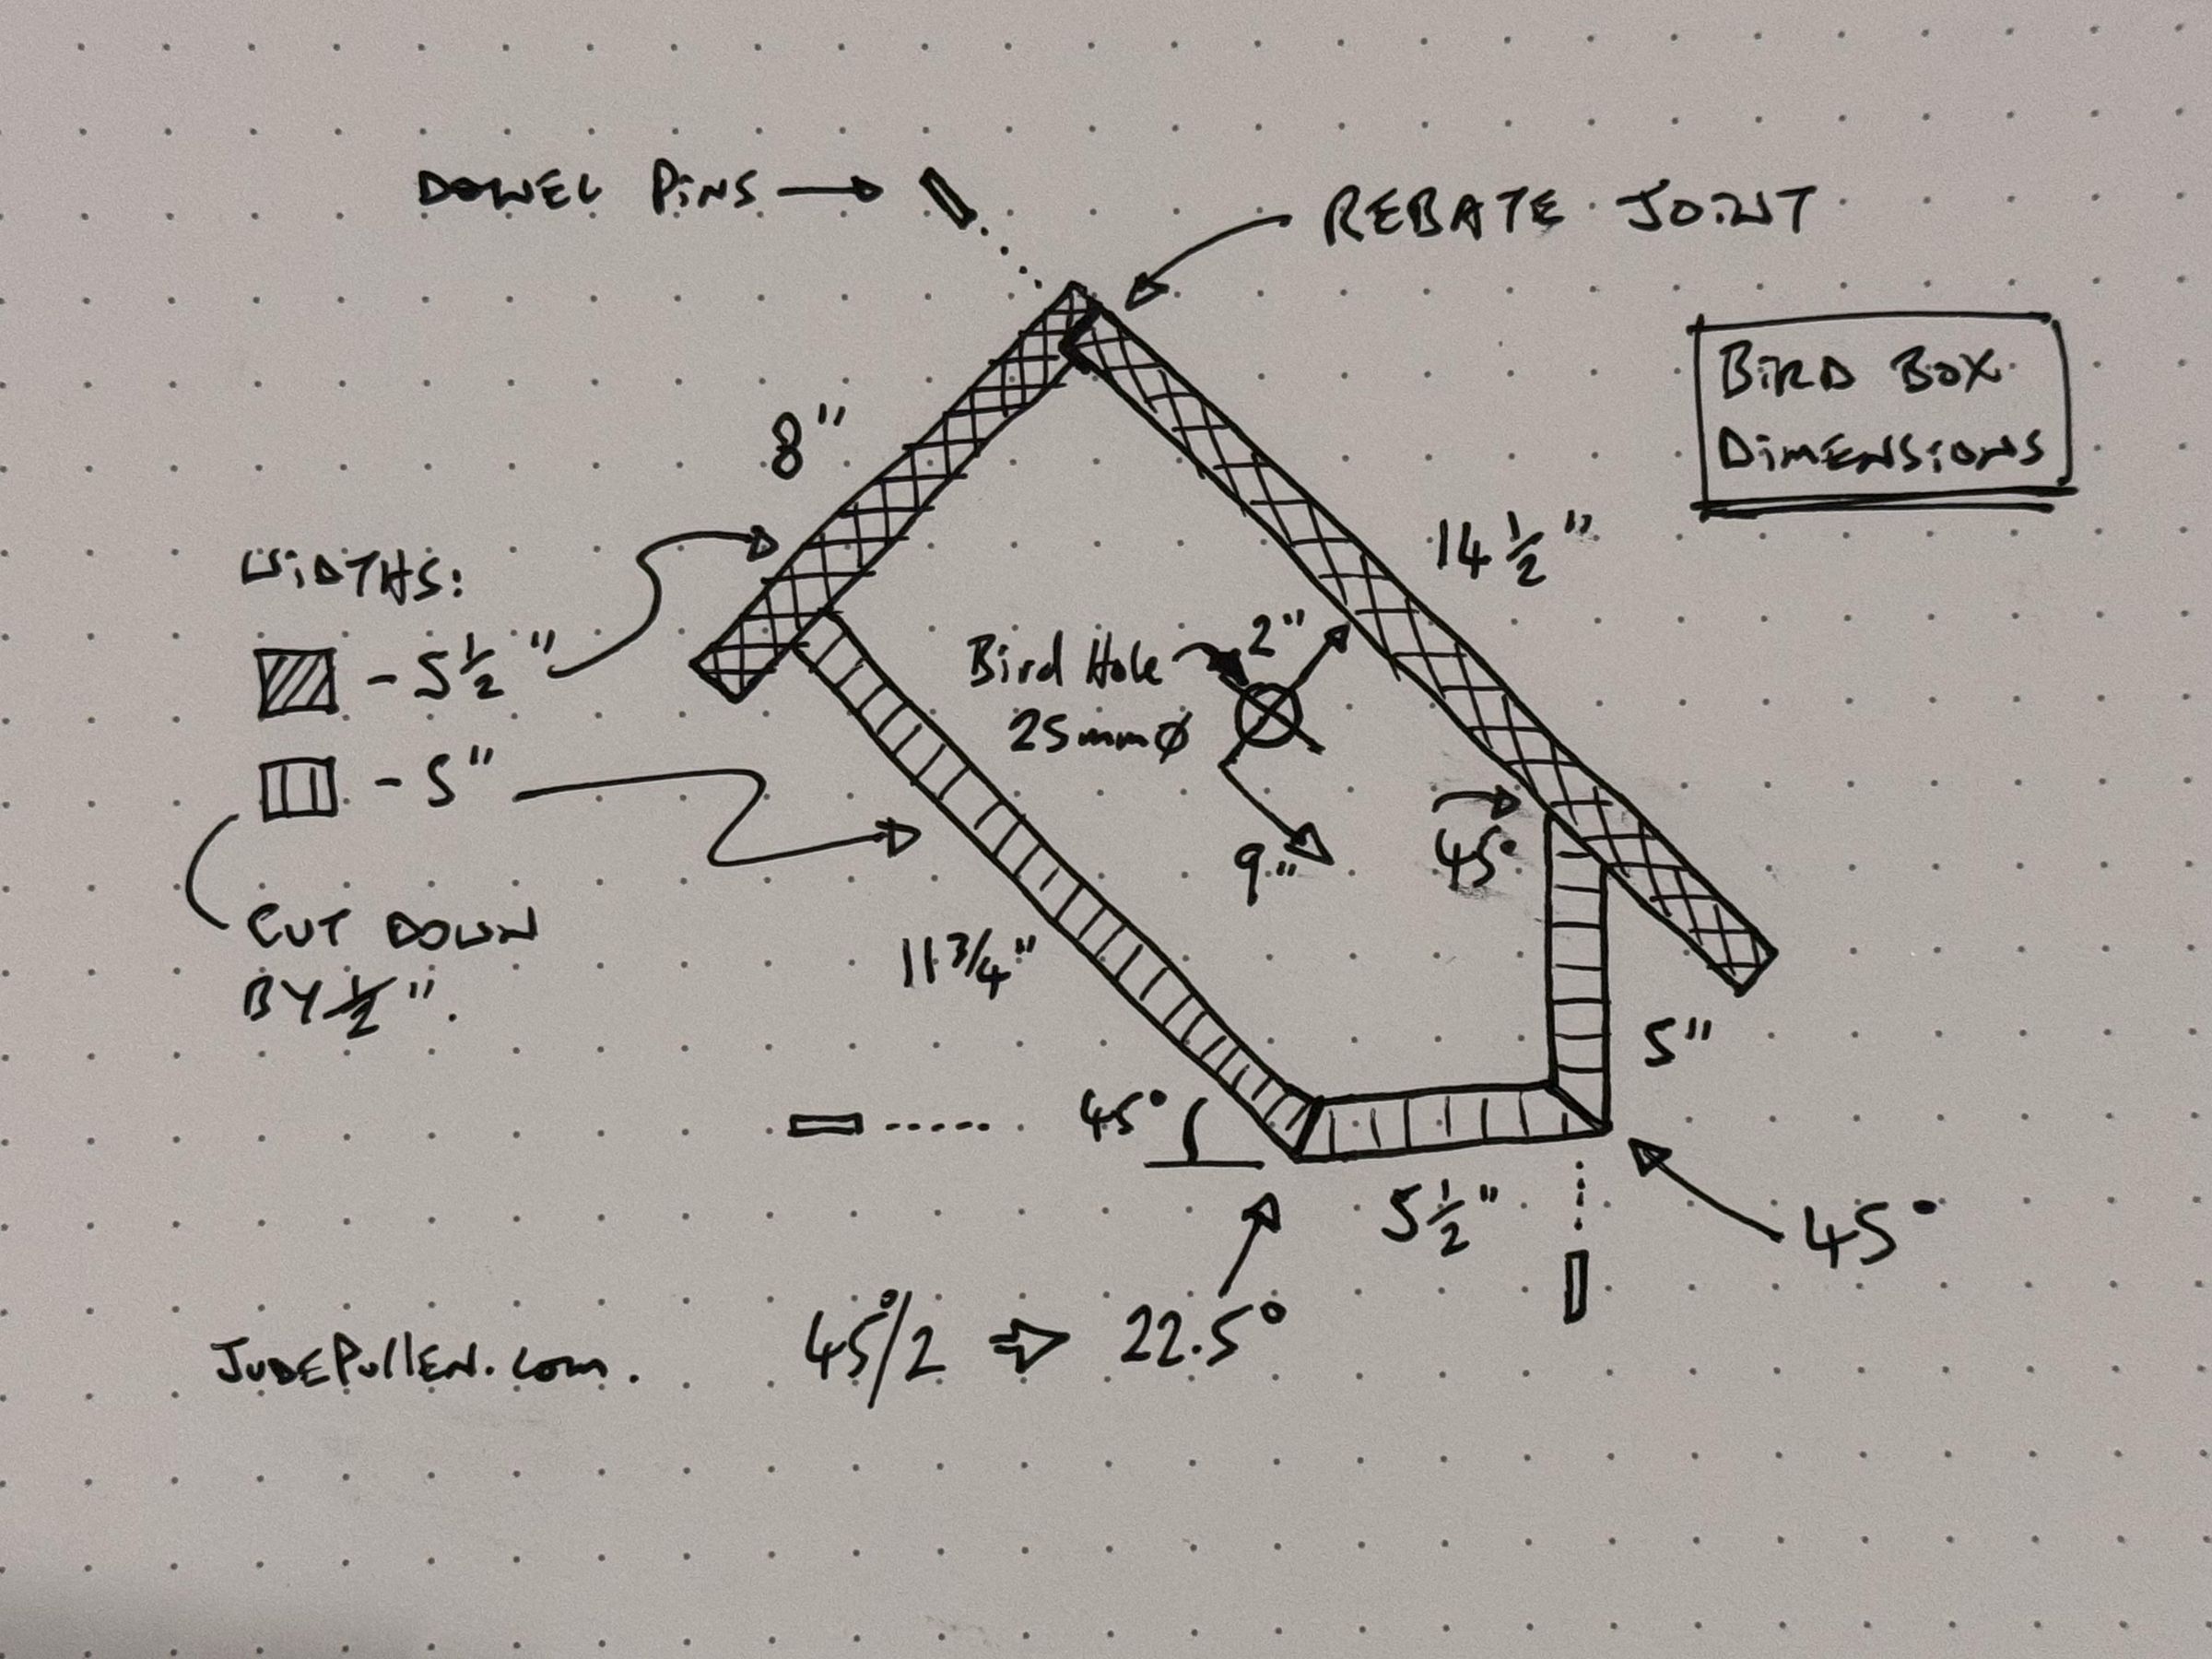 DOWEL PINS
REBATE JOINT
BIRD BOX
DIMENSIONS
8"
14 1/2"
WIDTHS:
- 5 1/2"
- 5"
CUT DOWN
BY 1/2".
Bird Hole
25mmØ
2"
9"
45°
11 3/4"
5"
45°
5 1/2"
45°
45°/2 ⇒ 22.5°
JUDEPULLEN.com.